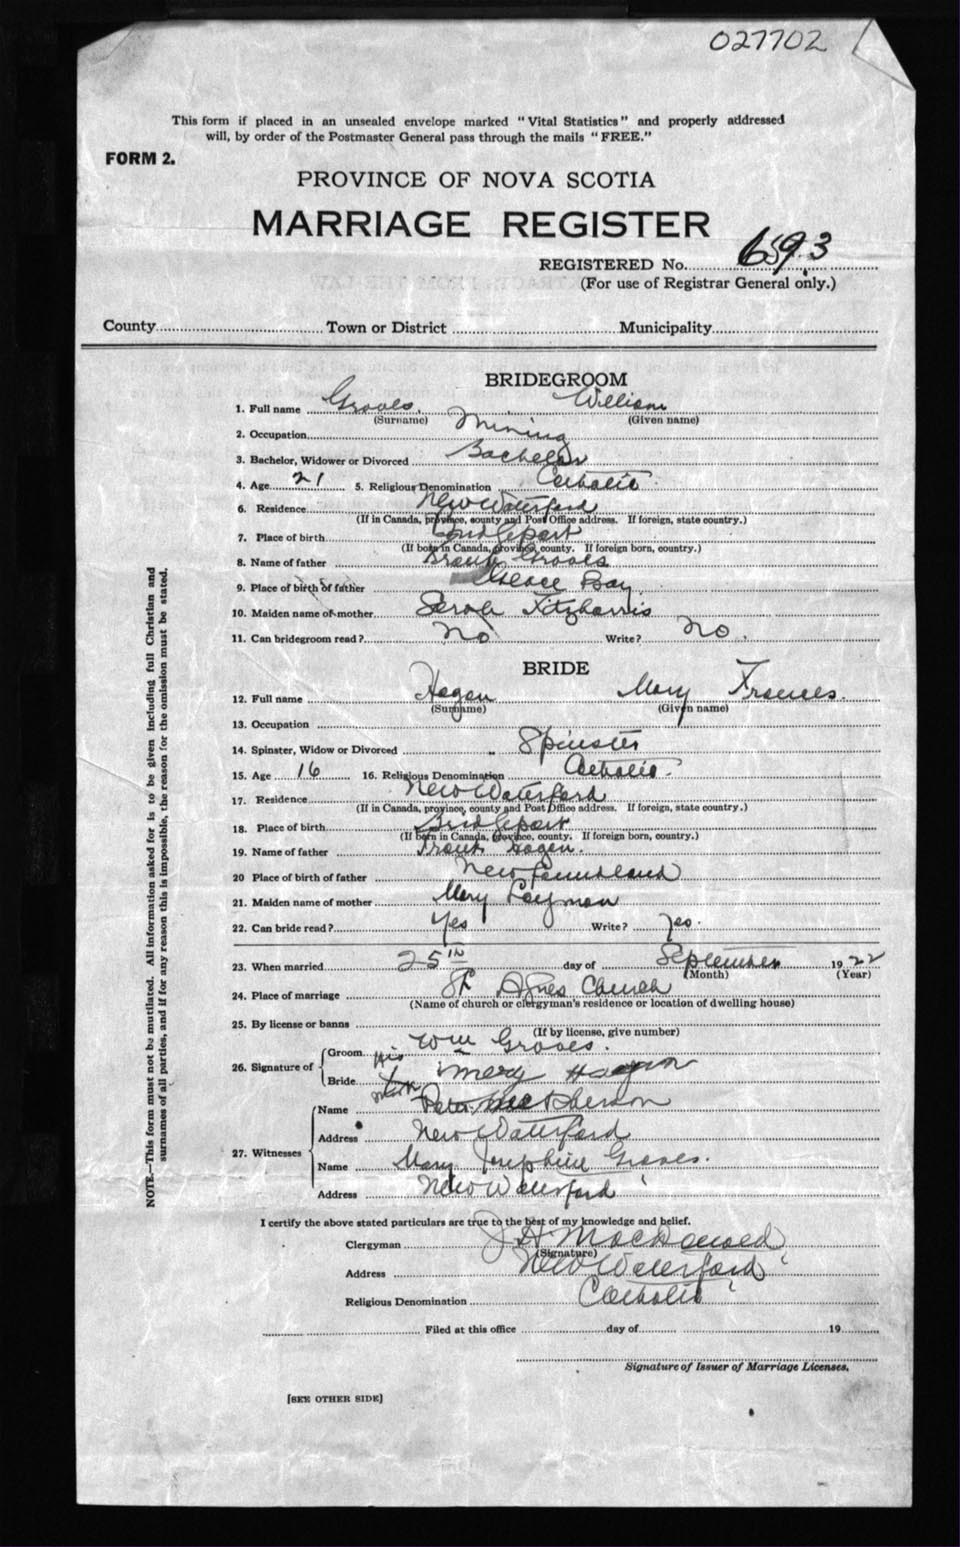 027702
This form if placed in an unsealed envelope marked "Vital Statistics" and properly addressed
will, by order of the Postmaster General pass through the mails "FREE."
FORM 2.
PROVINCE OF NOVA SCOTIA
MARRIAGE REGISTER
REGISTERED No. 6593
(For use of Registrar General only.)
County Town or District Municipality
BRIDEGROOM
1. Full name Groves, William
(Surname) (Given name)
2. Occupation Mining
3. Bachelor, Widower or Divorced Bachelor
4. Age 21 5. Religious Denomination Catholic
6. Residence New Waterford
(If in Canada, province, county and Post Office address. If foreign, state country.)
7. Place of birth Bridgeport
(If born in Canada, province, county. If foreign born, country.)
8. Name of father Frank Groves
9. Place of birth of father Glace Bay
10. Maiden name of mother Sarah Fitzharris
11. Can bridegroom read? No Write? No.
BRIDE
12. Full name Hogan Mary Frances.
(Surname) (Given name)
13. Occupation
14. Spinster, Widow or Divorced " Spinster
15. Age 16 16. Religious Denomination Catholic.
17. Residence New Waterford
(If in Canada, province, county and Post Office address. If foreign, state country.)
18. Place of birth Bridgeport
(If born in Canada, province, county. If foreign born, country.)
19. Name of father Frank Hogan.
20 Place of birth of father Newfoundland
21. Maiden name of mother Mary Layman
22. Can bride read? Yes Write? Yes.
23. When married 25th day of September 1922
(Month) (Year)
24. Place of marriage St. Agnes Church
(Name of church or clergyman's residence or location of dwelling house)
25. By license or banns
(If by license, give number)
26. Signature of Groom His Wm Groves.
Bride mark Mary Hogan
27. Witnesses Name Peter MacPherson
Address New Waterford
Name Mary Josephine Groves.
Address New Waterford
I certify the above stated particulars are true to the best of my knowledge and belief.
Clergyman J H MacDonald
(Signature)
Address New Waterford
Religious Denomination Catholic
Filed at this office day of 19
Signature of Issuer of Marriage Licenses.
[SEE OTHER SIDE]
NOTE—This form must not be mutilated. All information asked for is to be given including full Christian and
surnames of all parties, and if for any reason this is impossible, the reason for the omission must be stated.